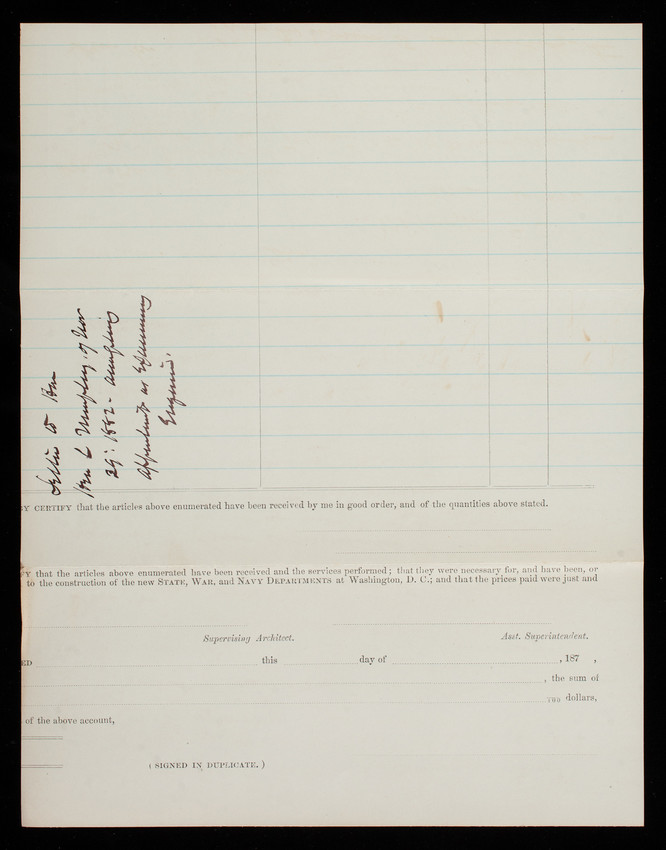 Letter to Hon
Ben L Humphrey of Nov
29: 1882 -
appointment as Examining
Engineer.
Y CERTIFY that the articles above enumerated have been received by me in good order, and of the quantities above stated.
Y that the articles above enumerated have been received and the services performed; that they were necessary for, and have been, or
to the construction of the new STATE, WAR, and NAVY DEPARTMENTS at Washington, D. C.; and that the prices paid were just and
Supervising Architect. Asst. Superintendent.
ED this day of , 187 ,
, the sum of
dollars,
of the above account,
( SIGNED IN DUPLICATE. )